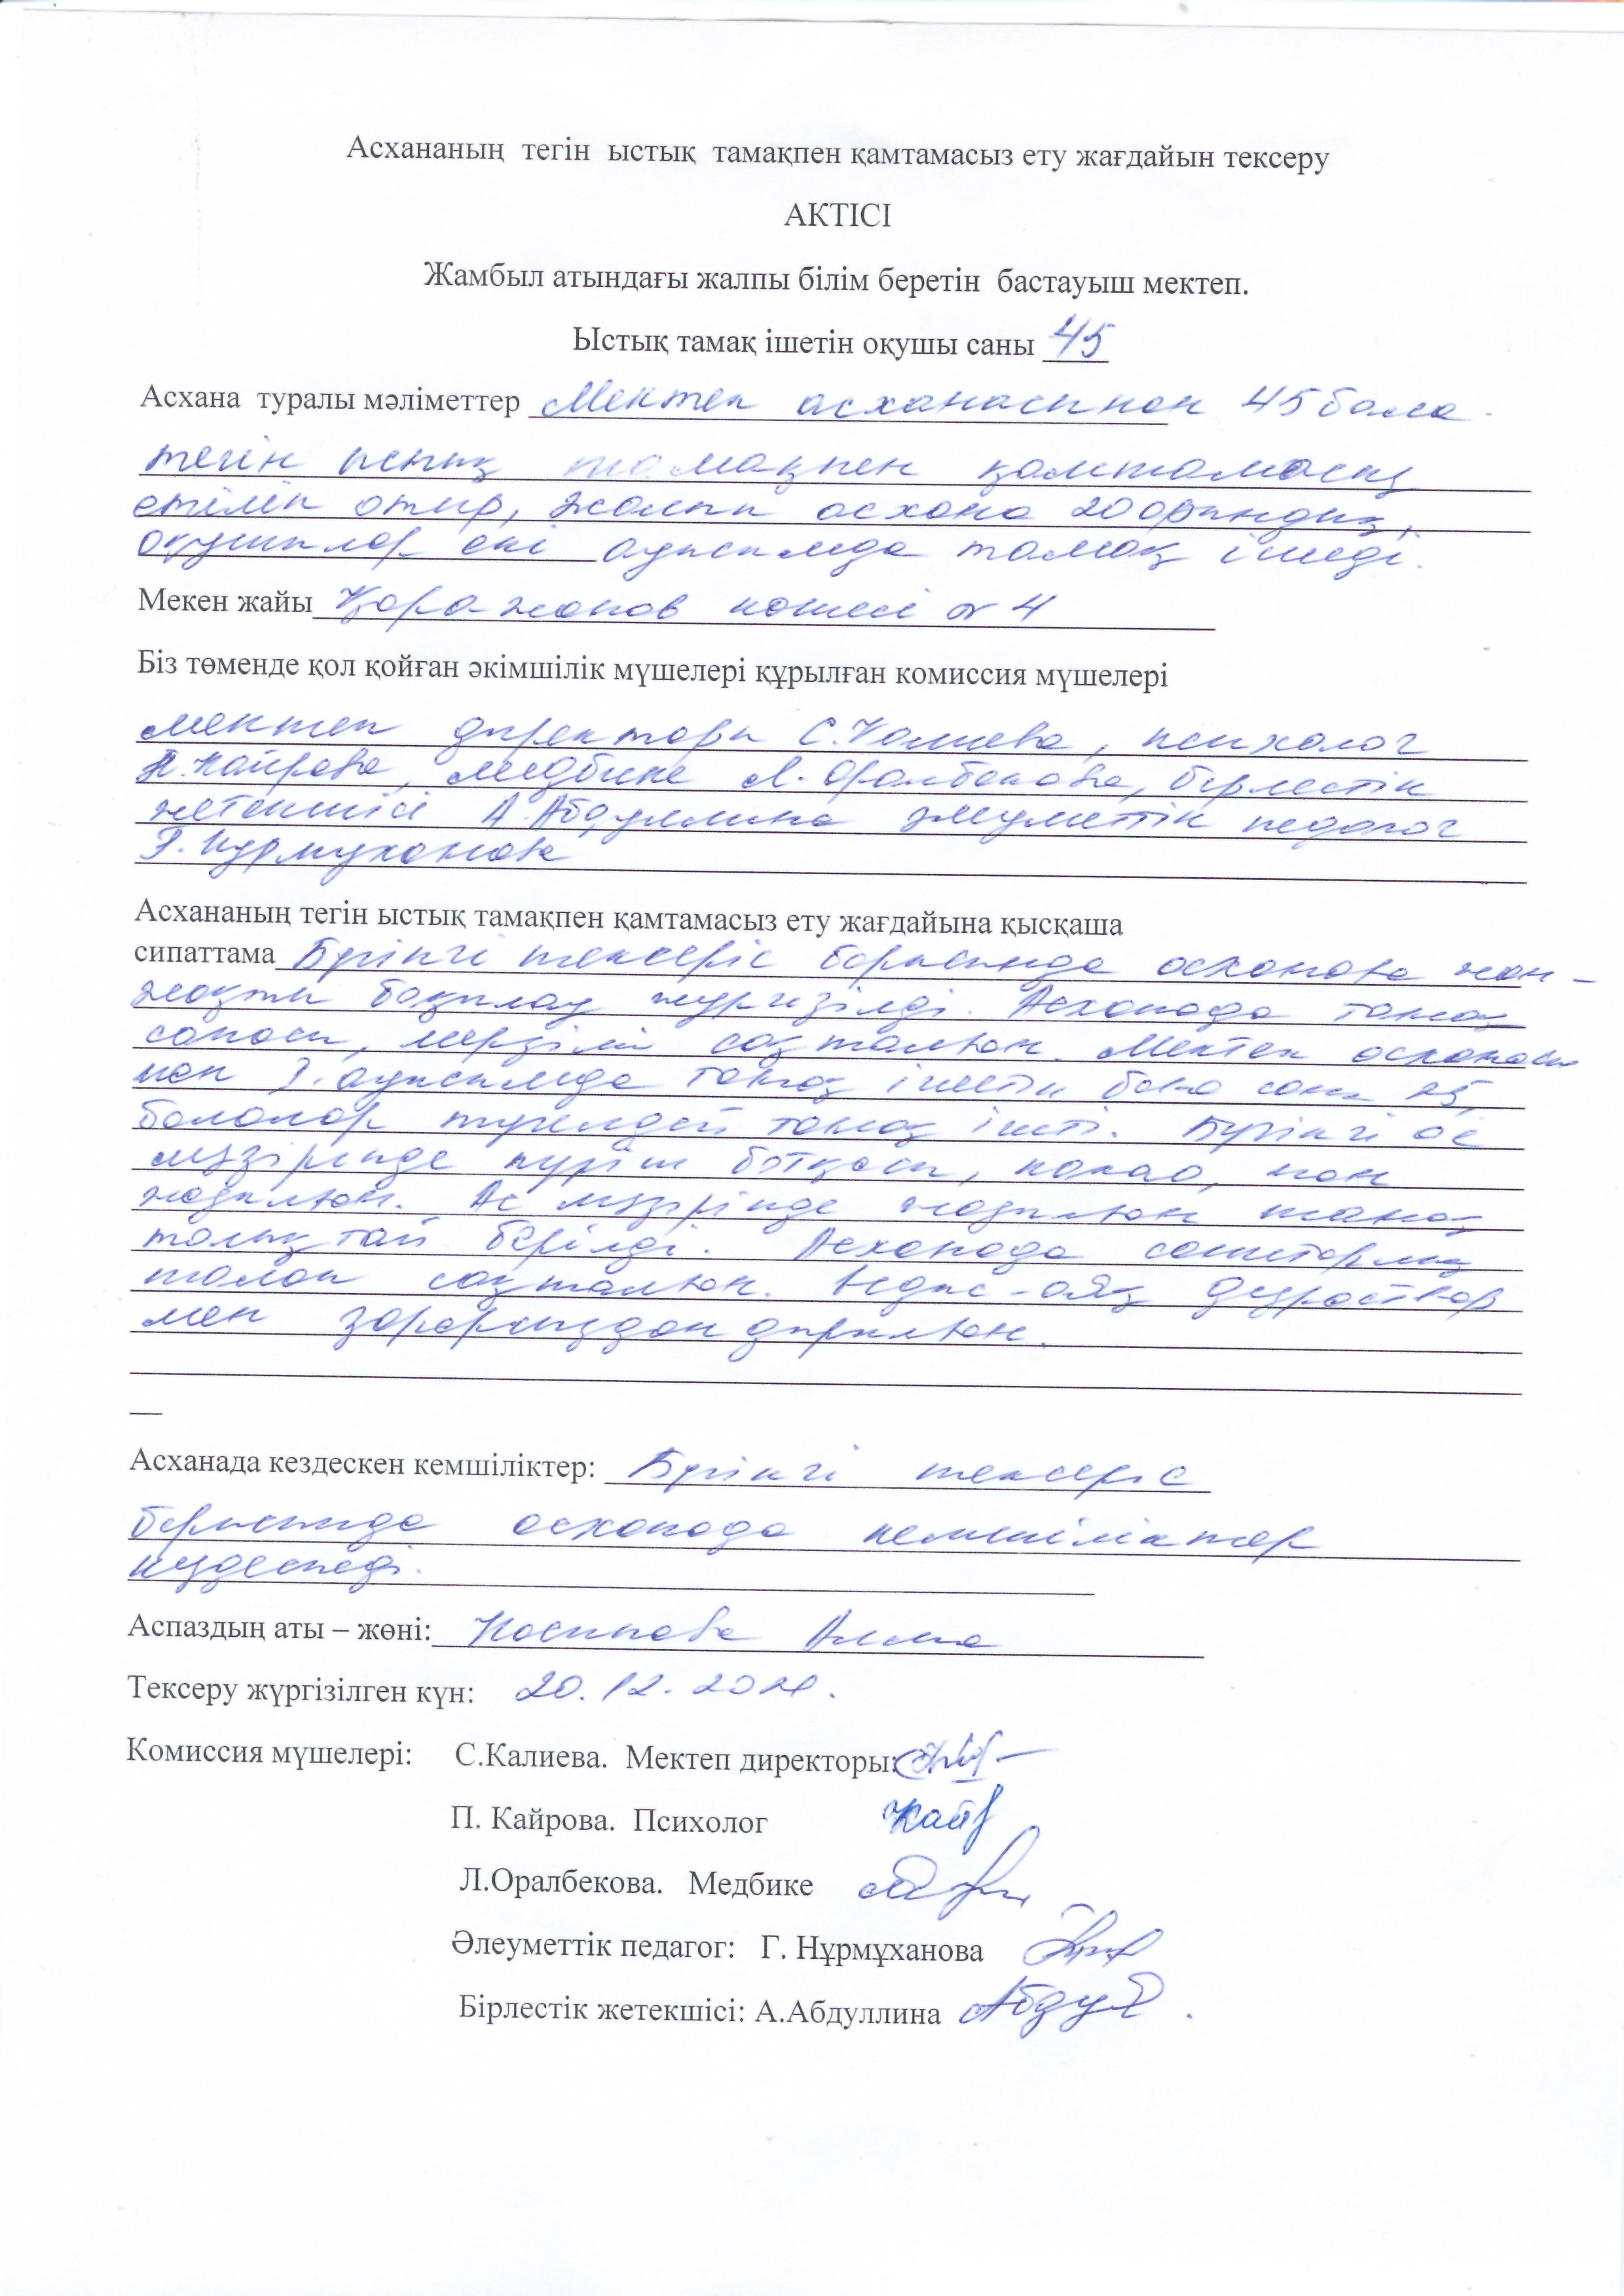 Асхананың тегін ыстық тамақпен қамтамасыз ету жағдайын тексеру
АКТІСІ
Жамбыл атындағы жалпы білім беретін бастауыш мектеп.
Ыстық тамақ ішетін оқушы саны 45
Асхана туралы мәліметтер Мектеп асханасынан 45 бала
тегін ыстық тамақпен қамтамасыз
етіліп отыр, жалпы асхана 20 орындық,
Оқушылар екі ауысымда тамақ ішеді.
Мекен жайы Қаражанов көшесі №4
Біз төменде қол қойған әкімшілік мүшелері құрылған комиссия мүшелері
мектеп директоры С.Калиева, психолог
П.Кайрова, медбике Л.Оралбекова, бірлестік
жетекшісі А.Абдуллина әлеуметтік педагог
Г.Нурмуханова
Асхананың тегін ыстық тамақпен қамтамасыз ету жағдайына қысқаша
сипаттама Бүгінгі тексеріс барысында асханаға жан-
жақты бақылау жүргізілді. Асханада тамақ
сапасы, мерзімі сақталған. Мектеп асханасы
нан ауысымда тамақ ішетін бала саны 25,
балалар түгелдей тамақ ішті. Бүгінгі ас
мәзірінде күріш ботқасы, какао, нан
жазылған. Ас мәзірінде жазылған тамақ
толықтай берілді. Асханада санитарлық
талап сақталған. Ыдыс-аяқ дезраствор
мен зарарсыздандырылған.
Асханада кездескен кемшіліктер: Бүгінгі тексеріс
барысында асханада кемшіліктер
кездеспеді.
Аспаздың аты – жөні: Косипова Алма
Тексеру жүргізілген күн: 20.12.2021.
Комиссия мүшелері: С.Калиева. Мектеп директоры:
П. Кайрова. Психолог Кайр
Л.Оралбекова. Медбике
Әлеуметтік педагог: Г. Нұрмұханова
Бірлестік жетекшісі: А.Абдуллина Абдул